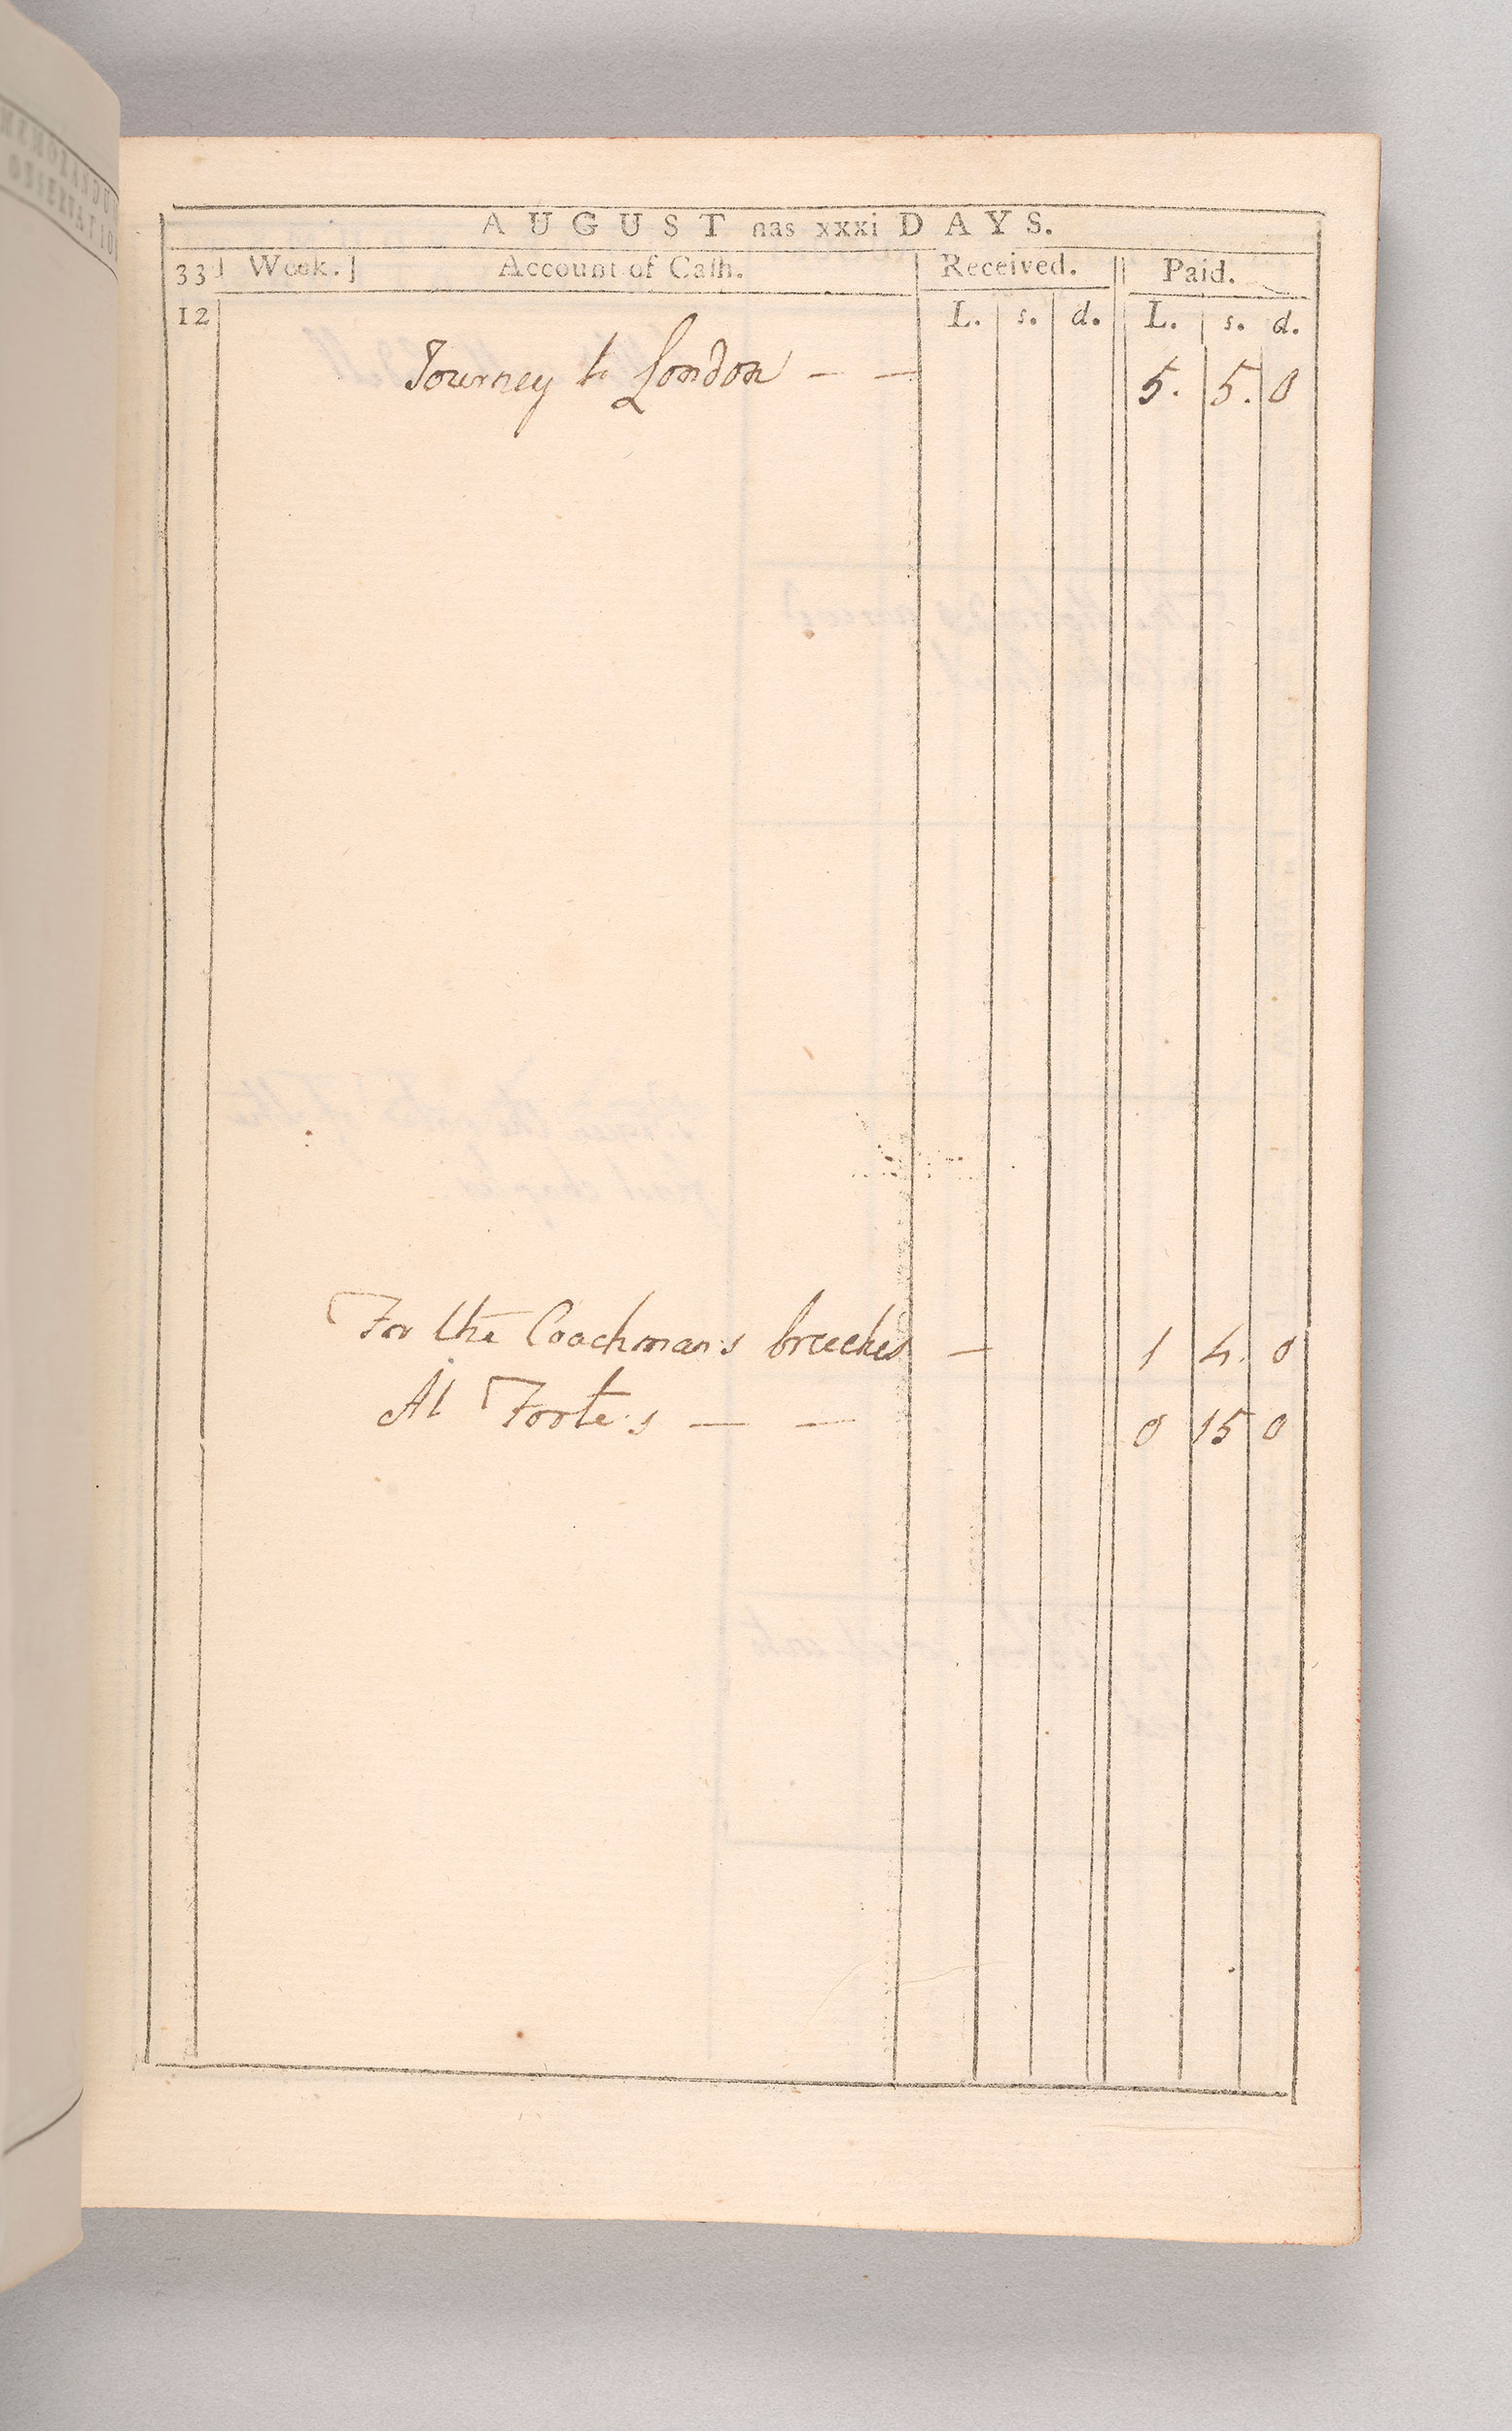 MEMORANDU
OBSERVATIO
AUGUST has xxxi DAYS.
33d Week.] Account of Cash. Received. Paid.
12 L. s. d. L. s. d.
Journey to London — — 5. 5. 0
For the Coachmans breeches — 1 4. 0
At Foote's — — 0 15 0